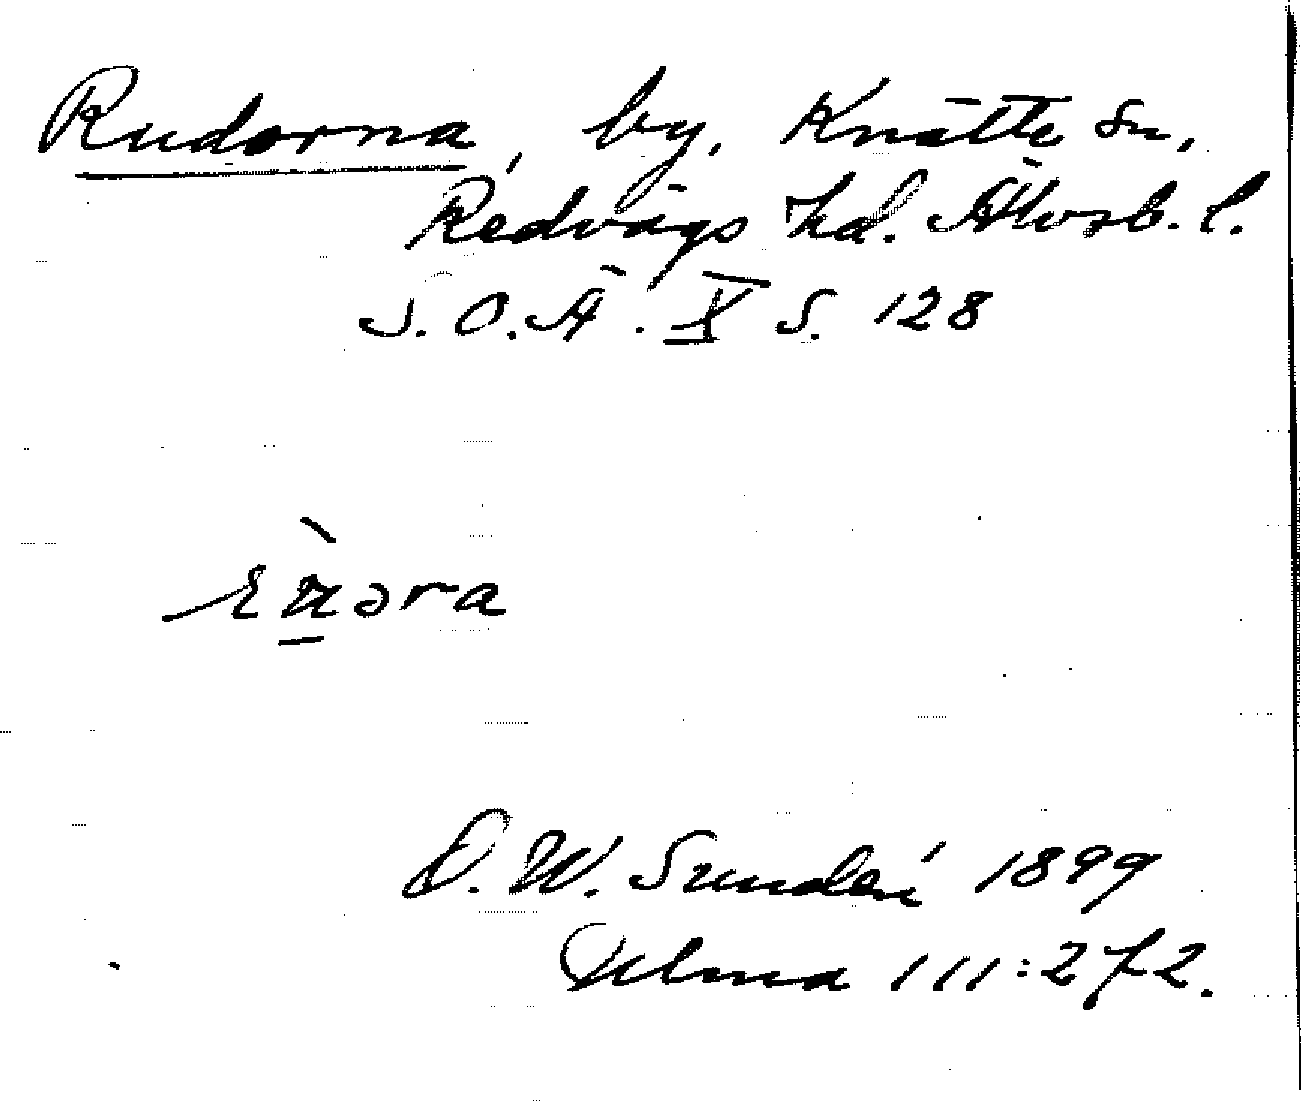 Rudorna, by, Knätte sn,
Redvägs hd. Älvsb. l.
S. O. Ä. X S. 128
D. W. Sundén 1899
Ulma 111:272.